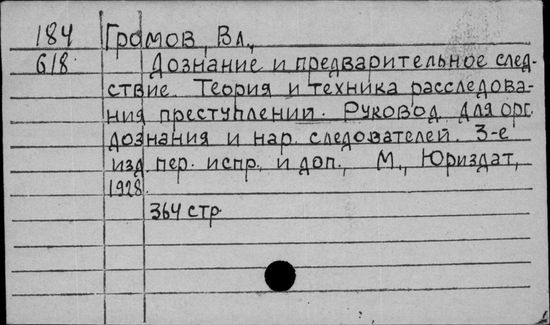 184 Громов, Вл.,
618 Дознание и предварительное след-
ствие. Теория и техника расследова-
ния преступлений. Руковод. для орг.
дознания и нар. следователей. 3-е
изд. пер. испр. и доп., М., Юриздат,
1928.
364 стр.